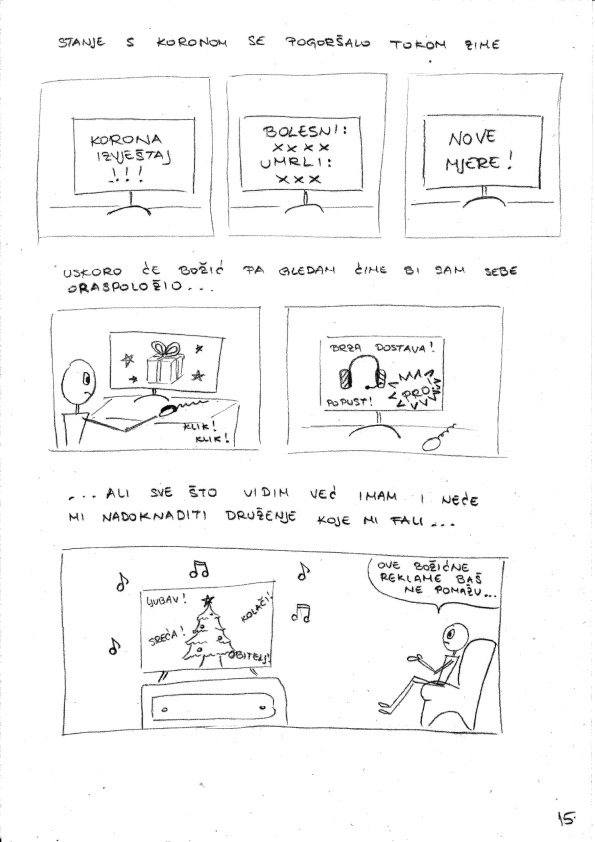 STANJE S KORONOM SE POGORŠALO TOKOM ZIME
KORONA
IZVJEŠTAJ
!!!
BOLESNI:
xxxx
UMRLI:
xxx
NOVE
MJERE!
USKORO ĆE BOŽIĆ PA GLEDAM ČIME BI SAM SEBE
ORASPOLOŽIO...
KLIK!
KLIK!
BRZA DOSTAVA!
POPUST!
...ALI SVE ŠTO VIDIM VEĆ IMAM I NEĆE
MI NADOKNADITI DRUŽENJE KOJE MI FALI...
LJUBAV!
KOLAČI!
SREĆA!
OBITELJ!
OVE BOŽIĆNE
REKLAME BAŠ
NE POMAŽU...
15.